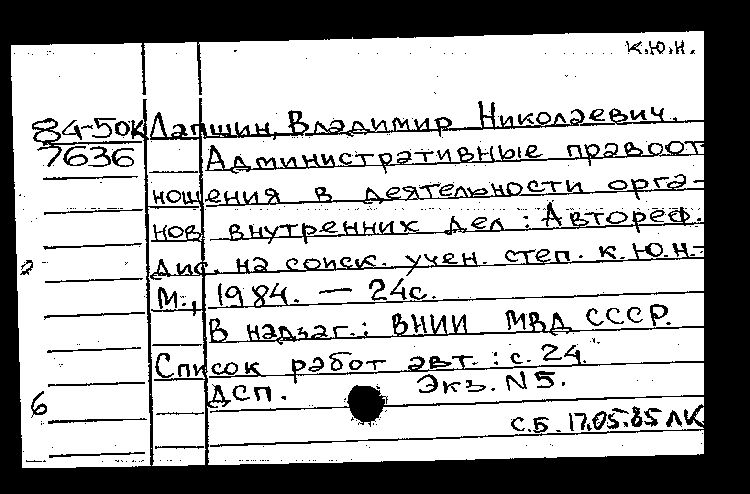 К.Ю.Н.
84-50К Лапшин, Владимир Николаевич.
7636 Административные правоот-
ношения в деятельности орга-
нов внутренних дел : Автореф.
2 дис. на соиск. учен. степ. к.ю.н.-
М., 1984. — 24с.
В надзаг.: ВНИИ МВД СССР.
Список работ авт. : с. 24.
6 ДСП. Экз. N 5.
С.Б. 17.05.85 ЛК